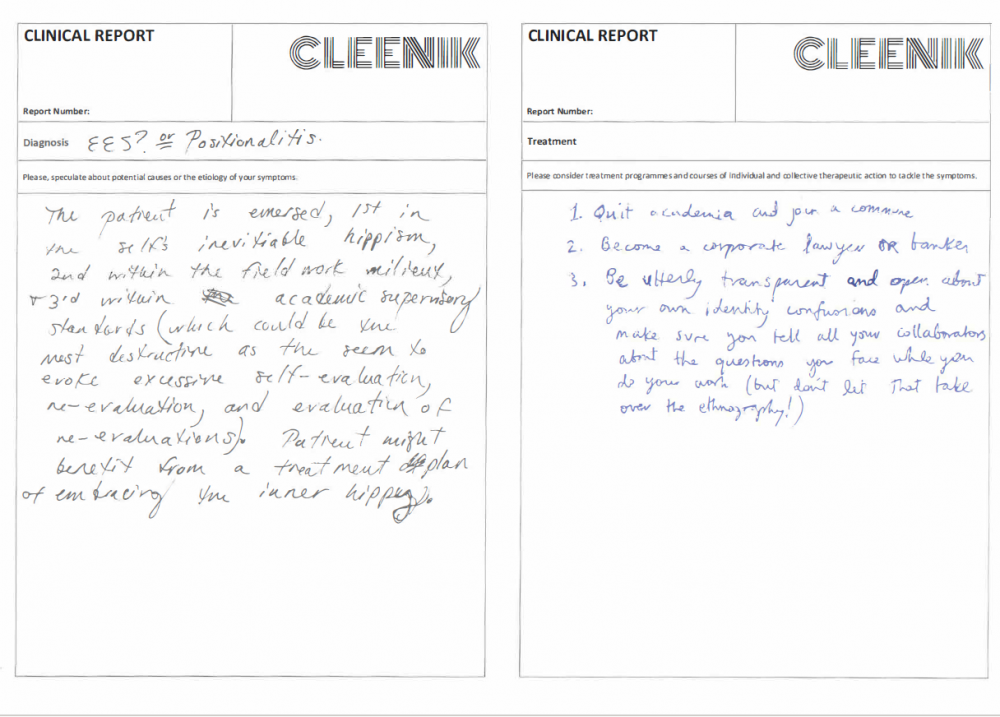 CLINICAL REPORT
CLEENIK
Report Number:
Diagnosis EES? or Positionalitis.
Please, speculate about potential causes or the etiology of your symptoms.
The patient is emersed, 1st in
the self's inevitiable hippism,
2nd within the field work milieux,
+ 3rd within academic supervisory
standards (which could be the
most destructive as the seem to
evoke excessive self-evaluation,
re-evaluation, and evaluation of
re-evaluations). Patient might
benefit from a treatment plan
of embracing the inner hippy).
CLINICAL REPORT
CLEENIK
Report Number:
Treatment
Please consider treatment programmes and courses of individual and collective therapeutic action to tackle the symptoms.
1. Quit academia and join a commune
2. Become a corporate lawyer OR banker
3. Be utterly transparent and open about
your own identity confusions and
make sure you tell all your collaborators
about the questions you face while you
do your work (but don't let that take
over the ethnography!)